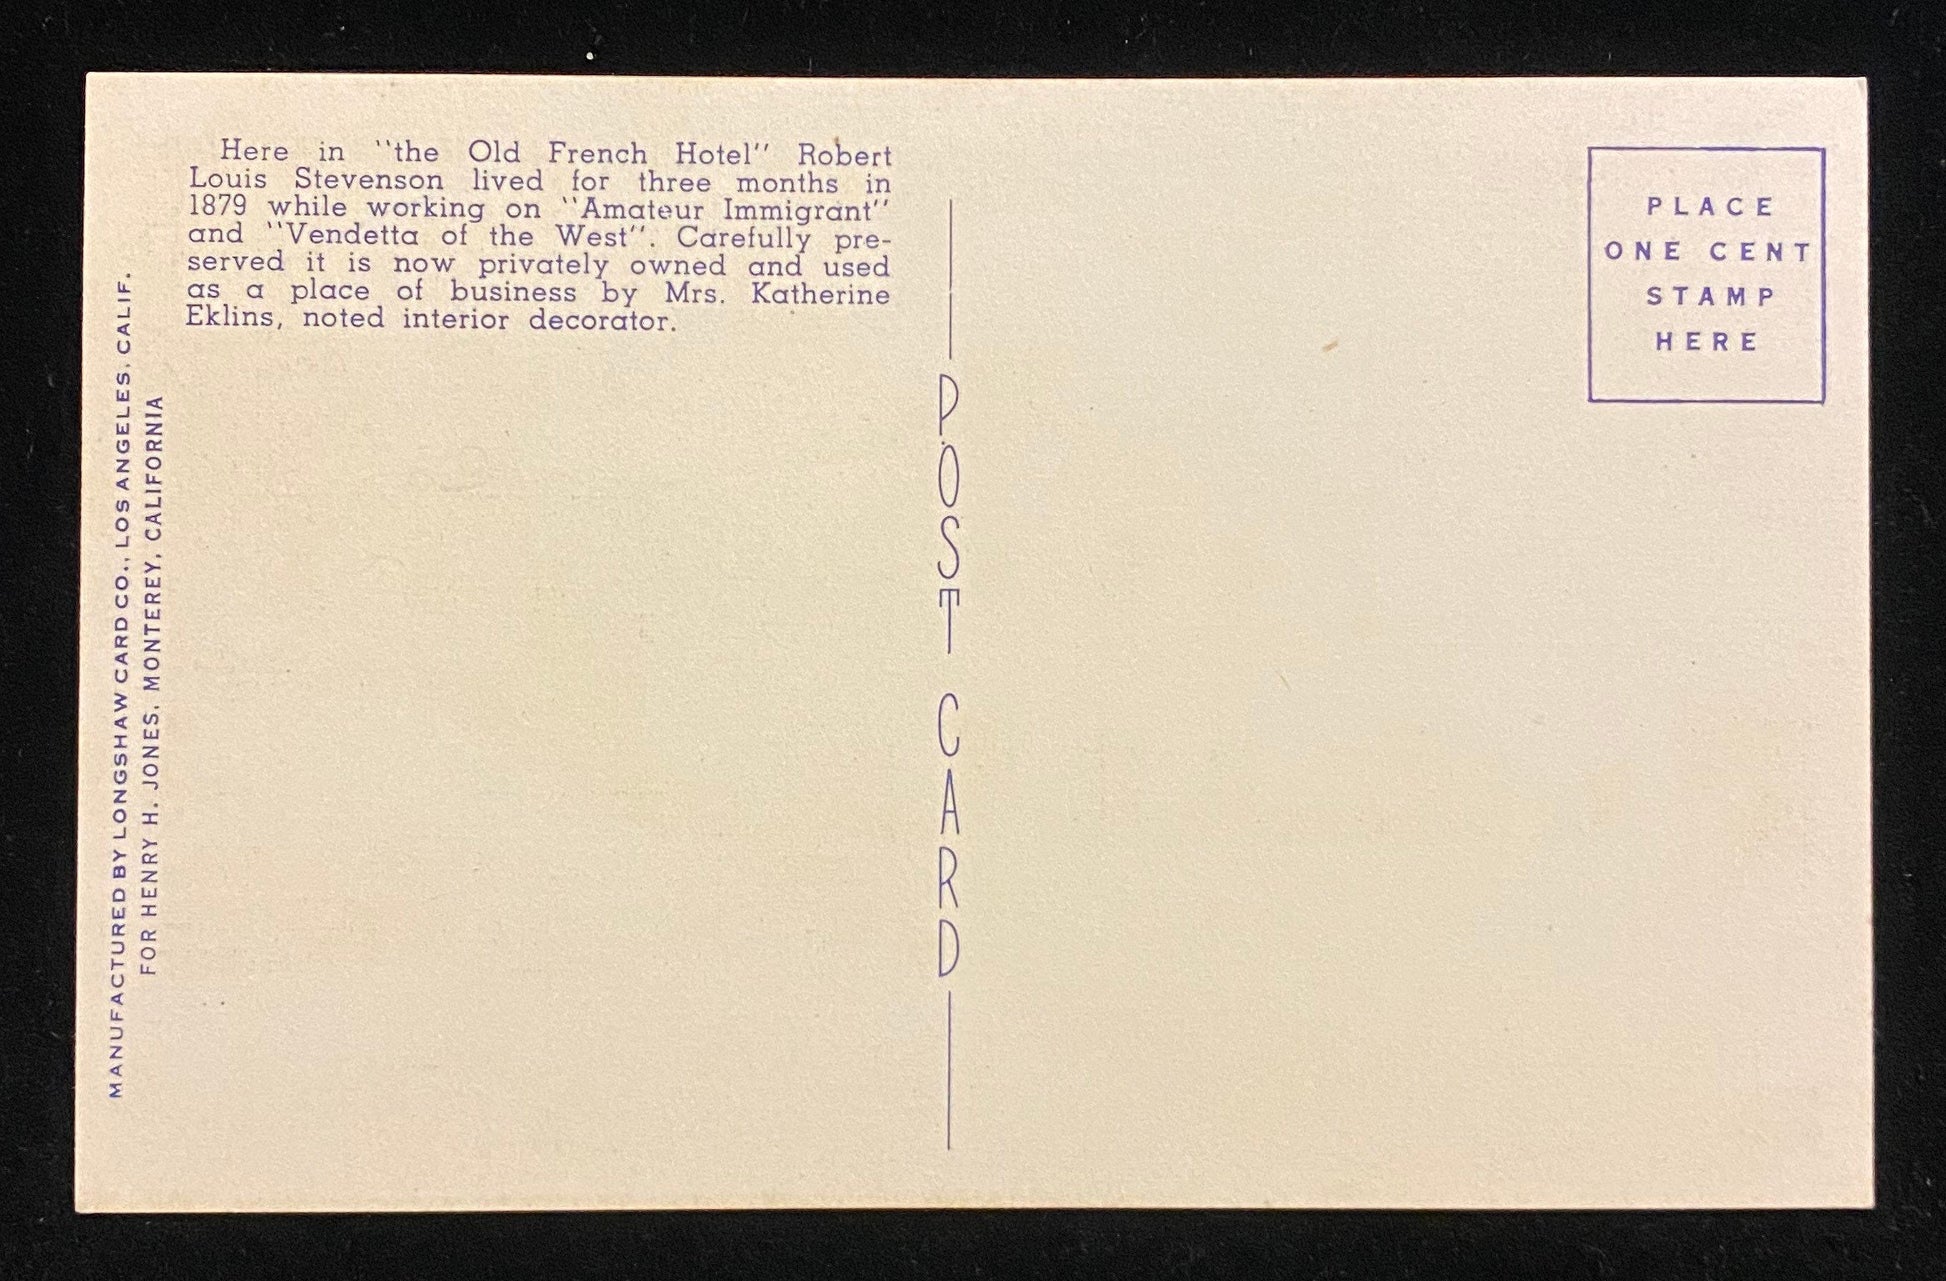 Here in "the Old French Hotel" Robert
Louis Stevenson lived for three months in
1879 while working on "Amateur Immigrant"
and "Vendetta of the West". Carefully pre-
served it is now privately owned and used
as a place of business by Mrs. Katherine
Eklins, noted interior decorator.
MANUFACTURED BY LONGSHAW CARD CO., LOS ANGELES, CALIF.
FOR HENRY H. JONES, MONTEREY, CALIFORNIA
POST CARD
PLACE
ONE CENT
STAMP
HERE